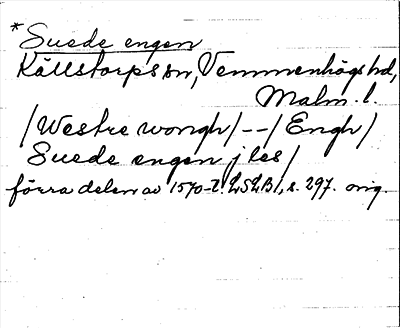 *Suede engen
Källstorps sn, Vemmenhögs hd,
Malm. l.
/Westre wongh/--/Engh/
Suede engen j les/
förra delen av 1570-t. LSLB1, s. 297. orig.